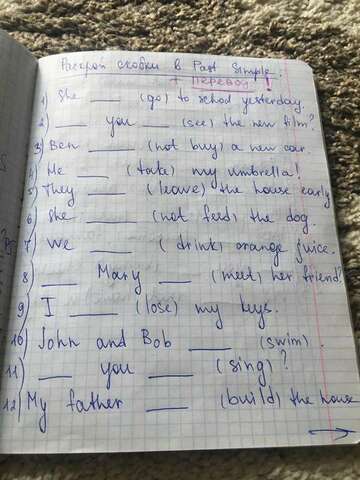 Раскрой скобки в Past Simple.
+ перевод!
1) She ___ (go) to school yesterday.
2) ___ you ___ (see) the new film?
3) Ben ___ (not buy) a new car.
4) He ___ (take) my umbrella!
5) They ___ (leave) the house early
6) She ___ (not feed) the dog.
7) We ___ (drink) orange juice.
8) ___ Mary ___ (meet) her friend?
9) I ___ (lose) my keys.
10) John and Bob ___ (swim).
11) ___ you ___ (sing)?
12) My father ___ (build) the house